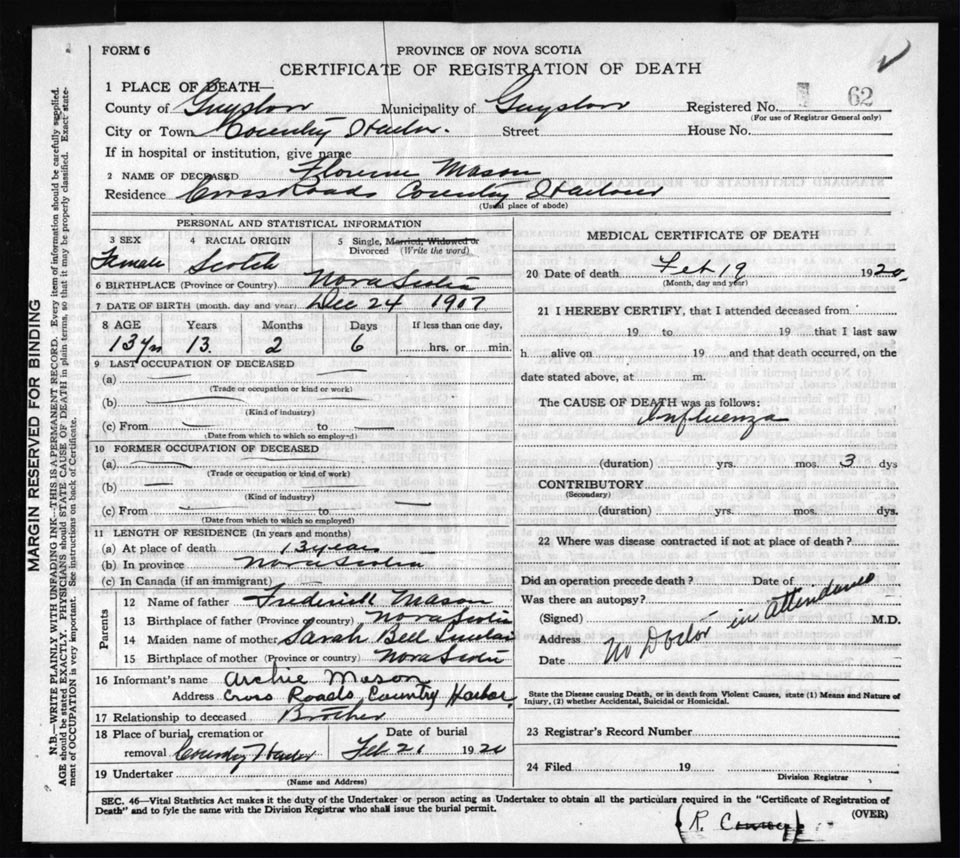 FORM 6
PROVINCE OF NOVA SCOTIA
CERTIFICATE OF REGISTRATION OF DEATH
1 PLACE OF DEATH—
County of Guysboro Municipality of Guysboro Registered No. 62
(For use of Registrar General only)
City or Town Country Harbor. Street House No.
If in hospital or institution, give name
2 NAME OF DECEASED Florence Mason
Residence Cross Roads Country Harbour
(Usual place of abode)
PERSONAL AND STATISTICAL INFORMATION
3 SEX 4 RACIAL ORIGIN 5 Single, Married, Widowed or Divorced (Write the word)
Female Scotch
6 BIRTHPLACE (Province or Country) Nova Scotia
7 DATE OF BIRTH (month, day and year) Dec 24 1907
8 AGE Years Months Days If less than one day,
13 yrs 13. 2 6 hrs. or min.
9 LAST OCCUPATION OF DECEASED
(a)
(Trade or occupation or kind or work)
(b)
(Kind of industry)
(c) From to
(Date from which to which so employed)
10 FORMER OCCUPATION OF DECEASED
(a)
(Trade or occupation or kind of work)
(b)
(Kind of industry)
(c) From to
(Date from which to which so employed)
11 LENGTH OF RESIDENCE (In years and months)
(a) At place of death 13 years
(b) In province Nova Scotia
(c) In Canada (if an immigrant)
Parents
12 Name of father Frederick Mason
13 Birthplace of father (Province or country) Nova Scotia
14 Maiden name of mother Sarah Bell Sinclair
15 Birthplace of mother (Province or country) Nova Scotia
16 Informant's name Archie Mason
Address Cross Roads Country Harbor,
17 Relationship to deceased Brother
18 Place of burial, cremation or removal Country Harbor Date of burial Feb 21 1920
19 Undertaker
(Name and Address)
MEDICAL CERTIFICATE OF DEATH
20 Date of death Feb 19 1920
(Month, day and year)
21 I HEREBY CERTIFY, that I attended deceased from
19 to 19 that I last saw
h alive on 19 and that death occurred, on the
date stated above, at m.
The CAUSE OF DEATH was as follows:
Influenza
(duration) yrs. mos. 3 dys
CONTRIBUTORY
(Secondary)
(duration) yrs. mos. dys.
22 Where was disease contracted if not at place of death?
Did an operation precede death? Date of
Was there an autopsy?
(Signed) M.D.
Address No Doctor in attendance
Date
State the Disease causing Death, or in death from Violent Causes, state (1) Means and Nature of
Injury, (2) whether Accidental, Suicidal or Homicidal.
23 Registrar's Record Number
24 Filed 19
Division Registrar
SEC. 46—Vital Statistics Act makes it the duty of the Undertaker or person acting as Undertaker to obtain all the particulars required in the "Certificate of Registration of
Death" and to fyle the same with the Division Registrar who shall issue the burial permit. (OVER)
(R. Conroy)
MARGIN RESERVED FOR BINDING
N.B.—WRITE PLAINLY WITH UNFADING INK—THIS IS A PERMANENT RECORD. Every item of information should be carefully supplied.
AGE should be stated EXACTLY. PHYSICIANS should STATE CAUSE OF DEATH in plain terms, so that it may be properly classified. Exact statement of OCCUPATION is very important. See instructions on back of Certificate.